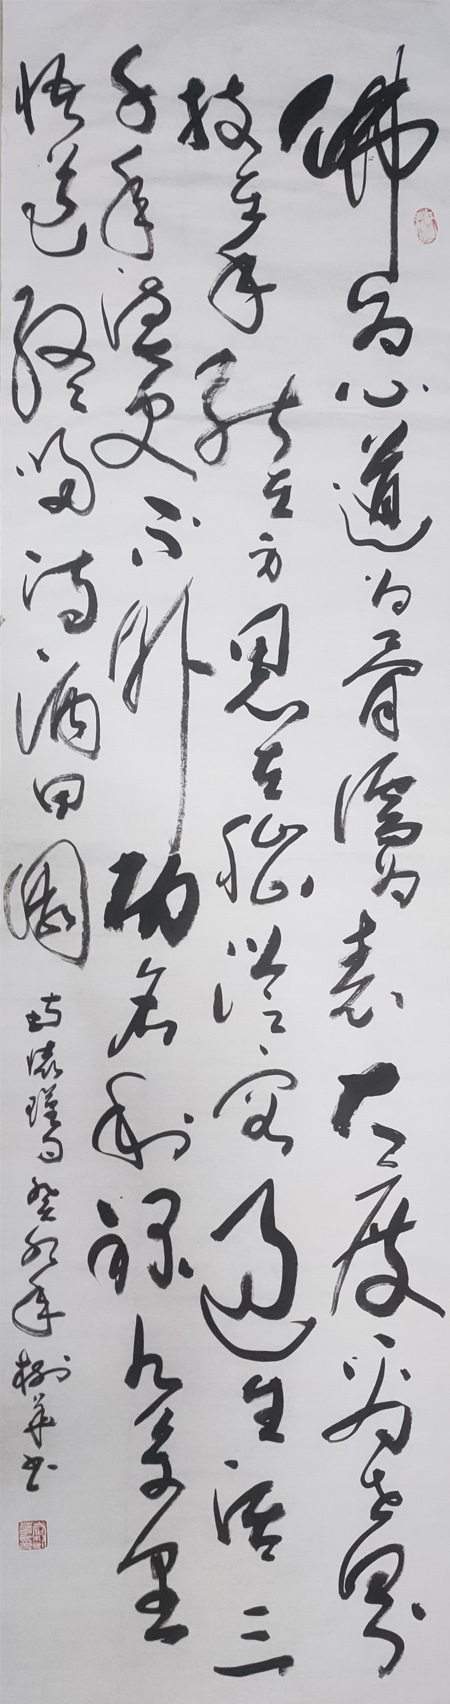 佛为心道为骨儒为表大度看世界
技在手能在身思在脑从容过生活三
千年读史不外功名利禄九万里
悟道终归诗酒田园
南怀瑾句癸卯年树华书